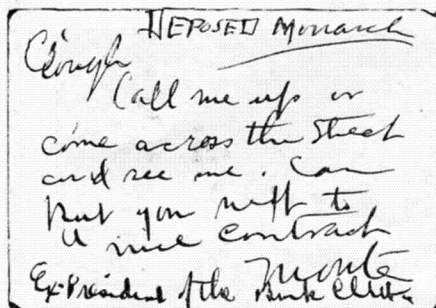 DEPOSED Monarch
Clough
Call me up or
come across the Street
and see me. Can
Put you next to
a nice contract
Monte
Ex-President of the Bunk Club.